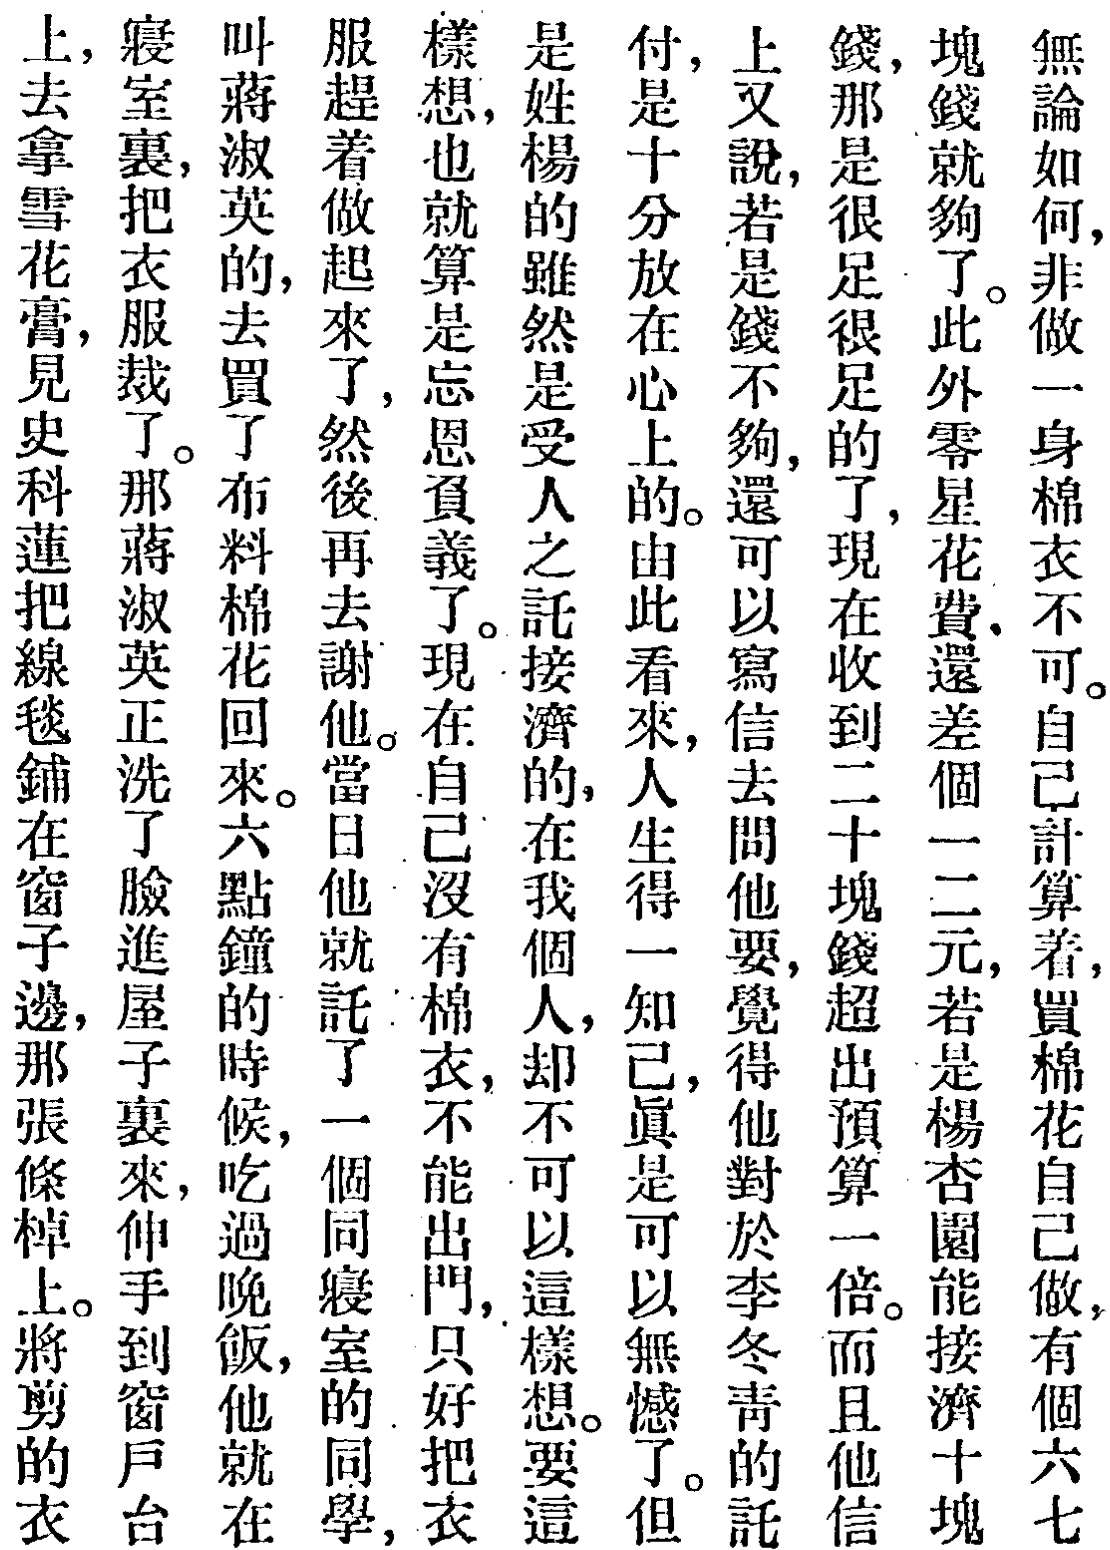 無論如何,非做一身棉衣不可。自己計算着,買棉花自己做,有個六七
塊錢就夠了。此外零星花費,還差個一二元,若是楊杏園能接濟十塊
錢,那是很足很足的了,現在收到二十塊錢超出預算一倍。而且他信
上又說,若是錢不夠,還可以寫信去問他要,覺得他對於李冬靑的託
付,是十分放在心上的。由此看來,人生得一知己,眞是可以無憾了。但
是姓楊的雖然是受人之託接濟的,在我個人,却不可以這樣想。要這
樣想,也就算是忘恩負義了。現在自己沒有棉衣,不能出門,只好把衣
服趕着做起來了,然後再去謝他。當日他就託了一個同寢室的同學,
叫蔣淑英的,去買了布料棉花回來。六點鐘的時候,吃過晚飯,他就在
寢室裏,把衣服裁了。那蔣淑英正洗了臉進屋子裏來,伸手到窗戶台
上,去拿雪花膏,見史科蓮把線毯鋪在窗子邊,那張條棹上。將剪的衣